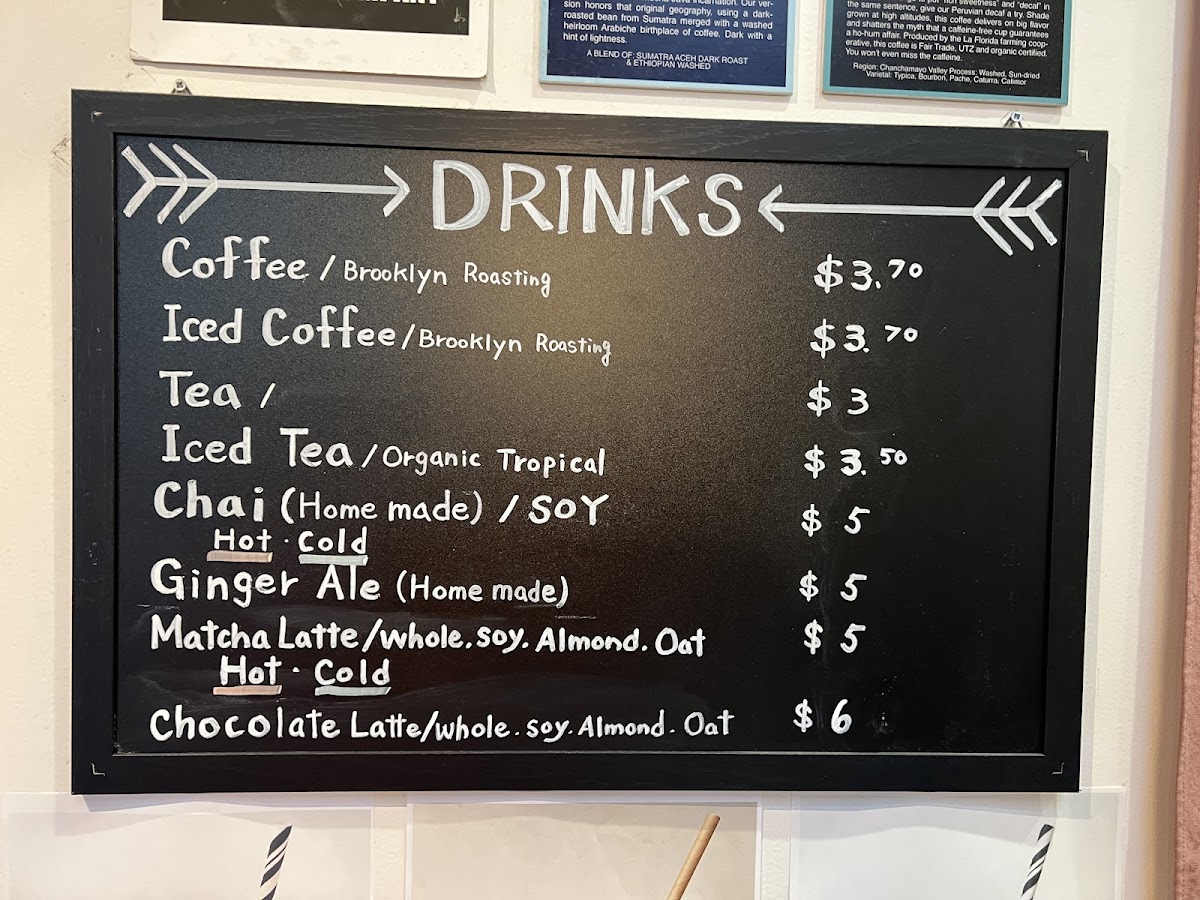 sion honors that original geography, using a dark-
roasted bean from Sumatra merged with a washed
heirloom Arabiche birthplace of coffee. Dark with a
hint of lightness.
A BLEND OF: SUMATRA ACEH DARK ROAST
& ETHIOPIAN WASHED
the same sentence, give our Peruvian decaf a try. Shade
grown at high altitudes, this coffee delivers on big flavor
and shatters the myth that a caffeine-free cup guarantees
a ho-hum affair. Produced by the La Florida farming coop-
erative, this coffee is Fair Trade, UTZ and organic certified.
You won't even miss the caffeine.
Region: Chanchamayo Valley Process: Washed, Sun-dried
Varietal: Typica, Bourbon, Pache, Caturra, Catimor
DRINKS
Coffee / Brooklyn Roasting $3.70
Iced Coffee / Brooklyn Roasting $3.70
Tea / $3
Iced Tea / Organic Tropical $3.50
Chai (Home made) / SOY $5
Hot · Cold
Ginger Ale (Home made) $5
Matcha Latte/whole.soy.Almond.Oat $5
Hot · Cold
Chocolate Latte/whole.soy.Almond.Oat $6